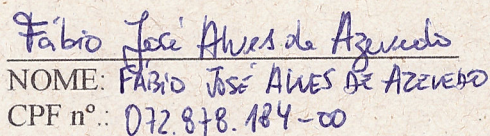 Fábio José Alves de Azevedo
NOME: FÁBIO JOSÉ ALVES DE AZEVEDO
CPF nº.: 072.878.184-00